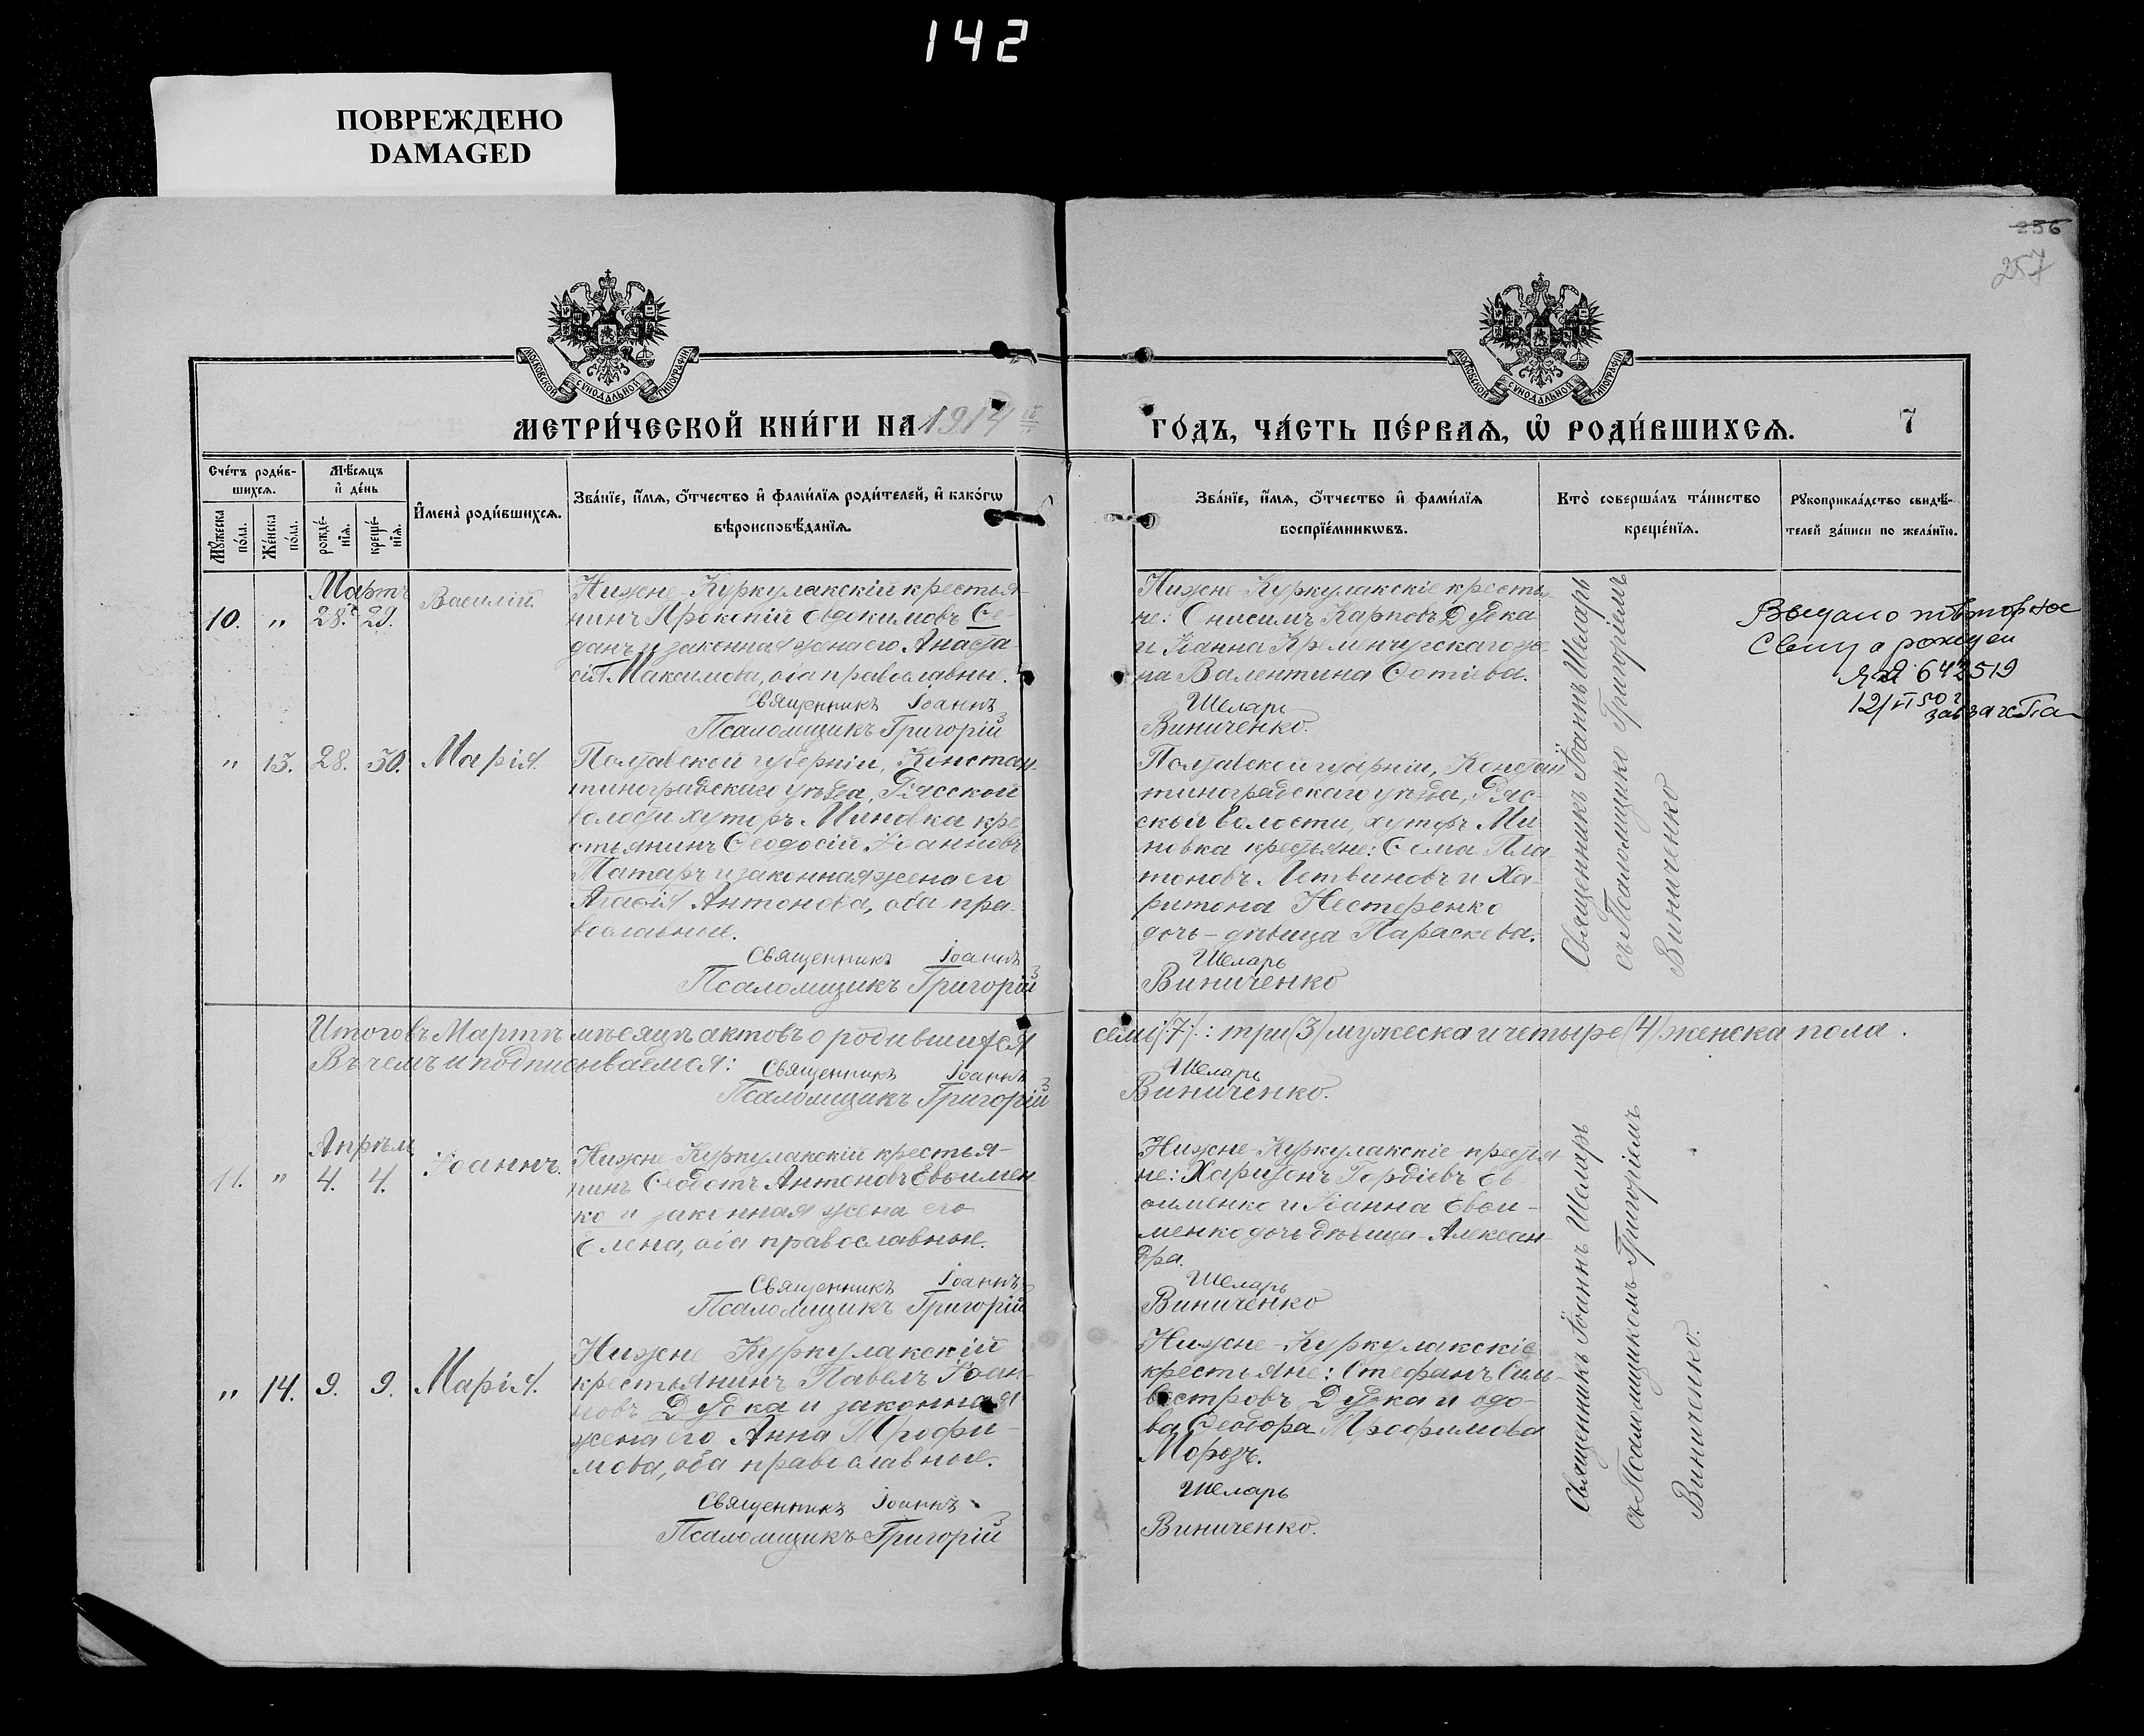 142
ПОВРЕЖДЕНО
DAMAGED
256
257
МОСКОВСКОЙ СѴНОДАЛЬНОЙ ТИПОГРАФІИ
МОСКОВСКОЙ СѴНОДАЛЬНОЙ ТИПОГРАФІИ
МЕТРИ́ЧЕСКОЙ КНИ́ГИ НА 1914 й
ГО́ДЪ, ЧА́СТЬ ПЕ́РВАѦ, Ѡ҆ РОДИ́ВШИХСѦ.
7
Сче́тъ роди́в-
шихсѧ.
Мꙋ́жеска по́ла.
Же́нска по́ла.
Мѣ́сѧцъ
и҆ де́нь
рожде́-
нїѧ.
креще́-
нїѧ.
И҆мена̀ роди́вшихсѧ.
Зва́нїе, и҆́мѧ, ѻ҆́тчество и҆ фами́лїѧ роди́телей, и҆ како́гѡ
вѣроисповѣ́данїѧ.
Зва́нїе, и҆́мѧ, ѻ҆́тчество и҆ фами́лїѧ
воспрїе́мникѡвъ.
Кто̀ соверша́лъ та́инство
креще́нїѧ.
Рꙋкоприкла́дство свидѣ́-
телей за́писи по жела́нїю.
Мартъ
10. " 28. 29. Василій.
Нижне-Куркулакскій крестья-
нинъ Прокопій Евдокимовъ Се-
данъ и законная жена его Анаста-
сія Максимова, оба православные.
Священникъ Іоаннъ
Псаломщикъ Григорій
Нижне-Куркулакскіе крестья-
не: Онисимъ Карповъ Дудка
и Іоанна Кременчугскаго же-
на Валентина Фотіева.
Шеларь
Виниченко.
Священникъ Іоаннъ Шеларь
съ Псаломщикомъ Григоріемъ
Виниченко
Выдано повторное
Свид о рожден
642519
12/VI 50 г
завзагсПа
" 13. 28. 30. Марія.
Полтавской губерніи, Констан-
тиноградскаго уѣзда, Рясской
волости хуторъ Миновка кре-
стьянинъ Ѳеодосій Іоанновъ
Татаръ и законная жена его
Агафія Антонова, оба пра-
вославные.
Священникъ Іоаннъ
Псаломщикъ Григорій
Полтавской губерніи, Констан-
тиноградскаго уѣзда, Ряс-
ской волости, хуторъ Ми-
новка крестьяне: Ѳома Пла-
тоновъ Литвиновъ и Ха-
ритона Нестеренко
дочь-дѣвица Параскева.
Шеларь
Виниченко
Итого въ Мартѣ мѣсяцѣ актовъ о родившихся
семь (7): три (3) мужеска и четыре (4) женска пола.
Въ чемъ и подписываемся: Священникъ Іоаннъ
Шеларь
Псаломщикъ Григорій
Виниченко.
Апрѣль
11. " 4. 4. Іоаннъ.
Нижне-Куркулакскій крестья-
нинъ Ѳеодотъ Антоновъ Евфимен-
ко и законная жена его
Елена, оба православные.
Священникъ Іоаннъ
Псаломщикъ Григорій
Нижне-Куркулакскіе крестья-
не: Харитонъ Гордіевъ Ев-
фименко и Іоанна Евфи-
менко дочь дѣвица-Алексан-
дра.
Шеларь
Виниченко
Священникъ Іоаннъ Шеларь
съ Псаломщикомъ Григоріемъ
Виниченко.
" 14. 9. 9. Марія.
Нижне-Куркулакскій
крестьянинъ Павелъ Іоан-
новъ Дудка и законная
жена его Анна Трофи-
мова, оба православные.
Священникъ Іоаннъ
Псаломщикъ Григорій
Нижне-Куркулакскіе
крестьяне: Стефанъ Силь-
вестровъ Дудка и вдо-
ва Ѳеодора Трофимова
Морозъ.
Шеларь
Виниченко.